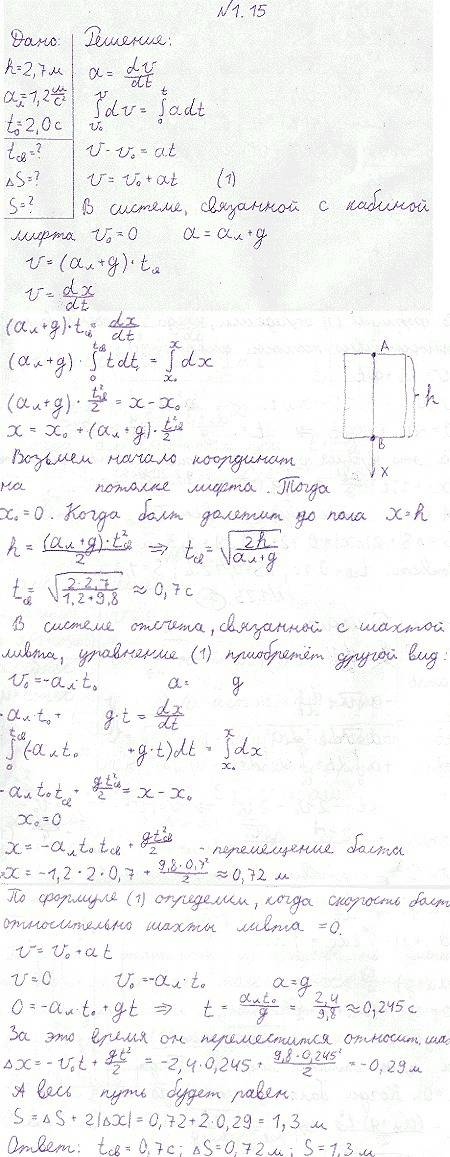 №1.15
Дано: Решение:
h=2,7 м
aл=1,2 м/с²
t₀=2,0 с
tсв=?
ΔS=?
S=?
a = dv/dt
∫(v₀→v) dv = ∫(0→t) a dt
v-v₀ = at
v = v₀+at (1)
В системе, связанной с кабиной
лифта v₀=0 a=aл+g
v=(aл+g)·tсв
v=dx/dt
(aл+g)·tсв = dx/dt
(aл+g)·∫(0→tсв) t dt = ∫(x₀→x) dx
(aл+g)·t²св/2 = x-x₀
x = x₀+(aл+g)·t²св/2
A
h
B
x
Возьмем начало координат
на потолке лифта. Тогда
x₀=0. Когда болт долетит до пола x=h
h = (aл+g)·t²св/2 ⇒ tсв=√(2h/(aл+g))
tсв=√(2·2,7/(1,2+9,8)) ≈ 0,7 с
В системе отсчета, связанной с шахтой
лифта, уравнение (1) приобретёт другой вид:
v₀=-aл·t₀ a= g
-aл t₀+ g·t = dx/dt
∫(0→tсв) (-aл t₀ +g·t)dt = ∫(x₀→x) dx
-aл t₀ tсв + gt²св/2 = x-x₀
x₀=0
x=-aл t₀ tсв + gt²св/2 - перемещение болта
x=-1,2·2·0,7 + 9,8·0,7²/2 ≈ 0,72 м
По формуле (1) определим, когда скорость болт
относительно шахты лифта =0.
v=v₀+at
v=0 v₀=-aл·t₀ a=g
0=-aл·t₀+gt ⇒ t = aл t₀/g = 2,4/9,8 ≈0,245 с
За это время он переместится относит. ша
Δx=-v₀t+gt²/2 = -2,4·0,245+9,8·0,245²/2 = -0,29 м
А весь путь будет равен
S=ΔS+2|Δx|=0,72+2·0,29=1,3 м
Ответ: tсв=0,7с; ΔS=0,72 м; S=1,3 м